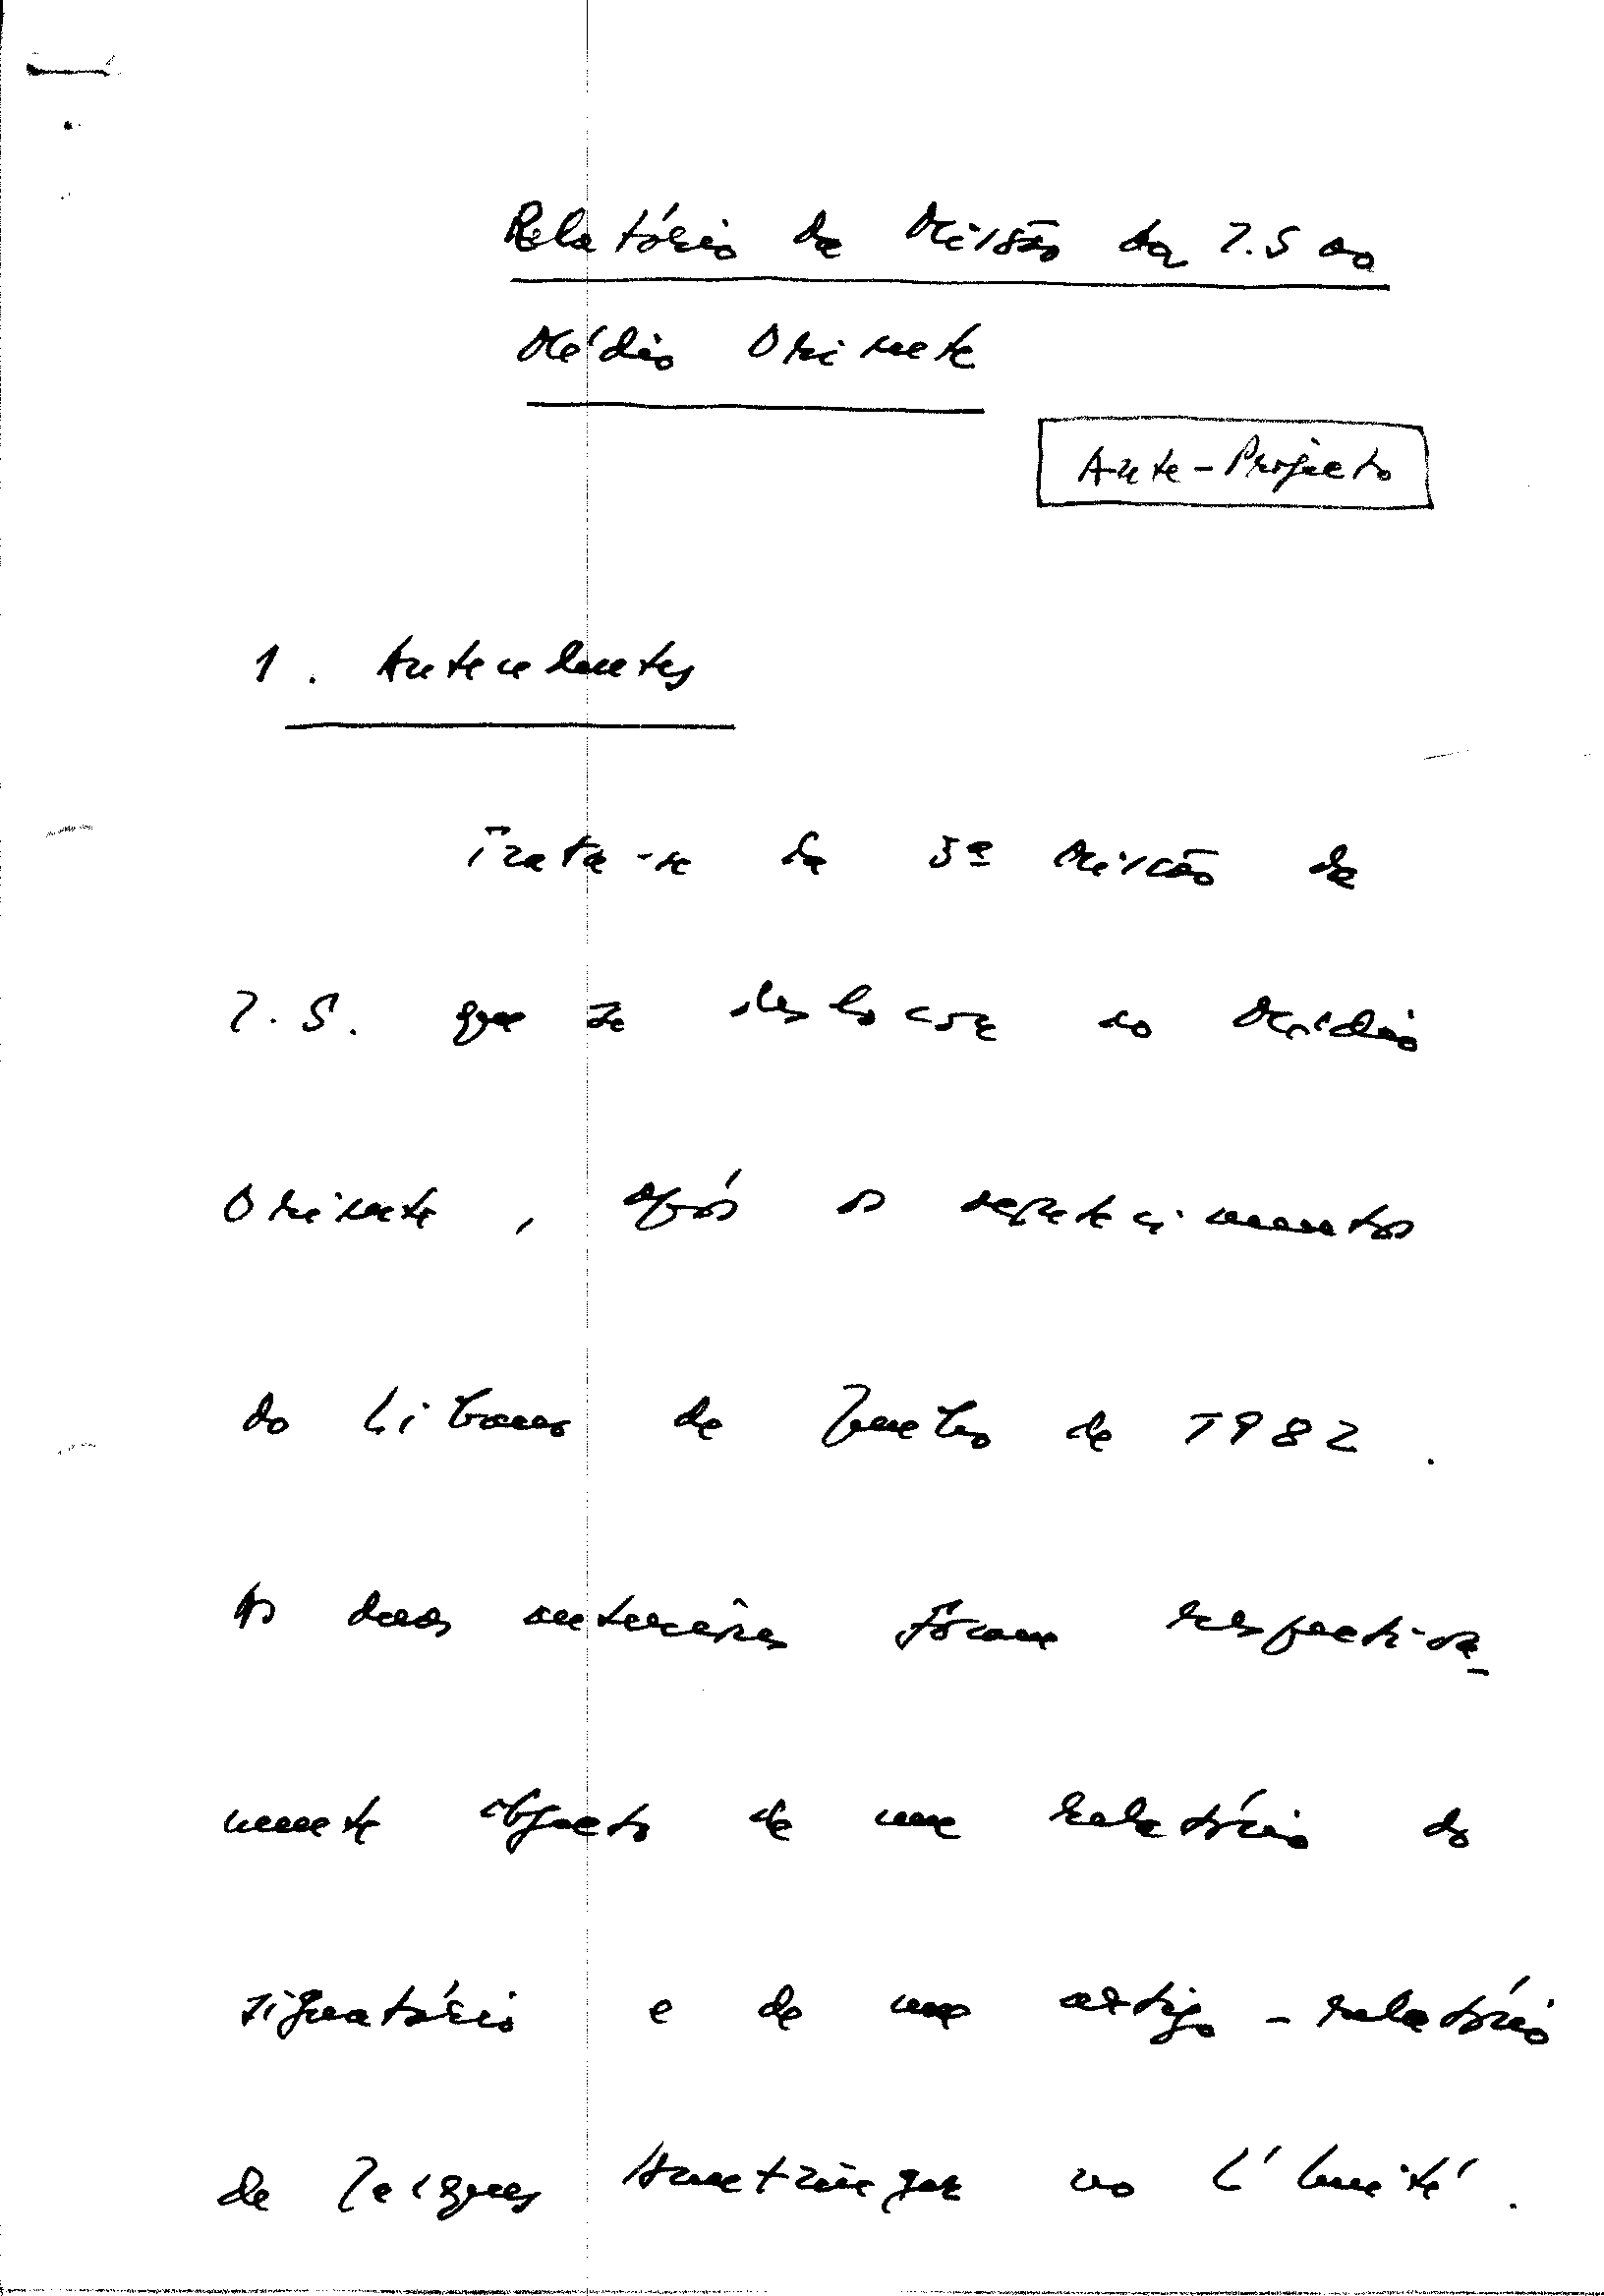 Relatório da Missão da I.S ao
Médio Oriente
Ante-Projecto
1. Antecedentes
Trata-se da 3ª Missão da
I.S. que se desloca ao Médio
Oriente, após os acontecimentos
do Líbano de Junho de 1982.
As duas anteriores foram respectiva-
mente objecto de um relatório do
signatário e de um artigo-relatório
de Jacques Huntzinger no L'Unité.